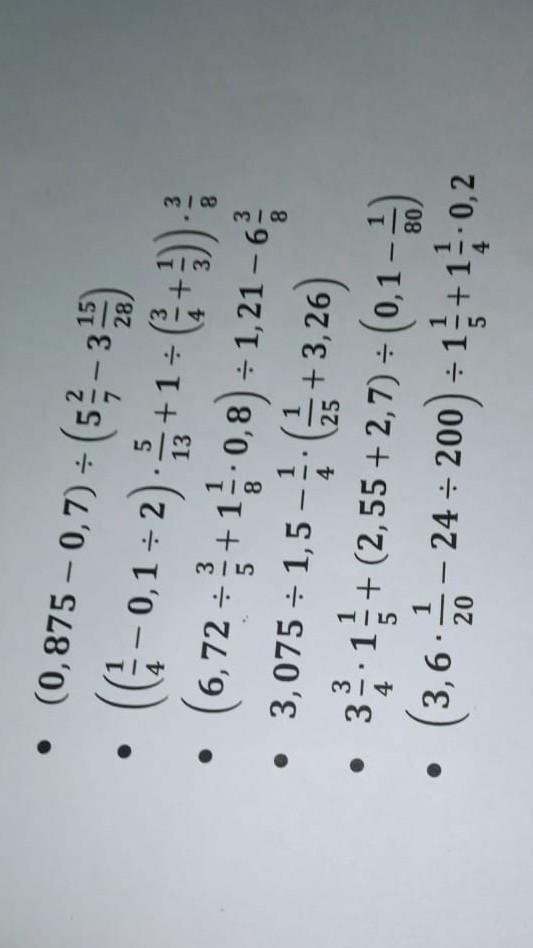 • (0,875 − 0,7) ÷ (5 2/7 − 3 15/28)
• ((1/4 − 0,1 ÷ 2) · 5/13 + 1 ÷ (3/4 + 1/3)) · 3/8
• (6,72 ÷ 3/5 + 1 1/8 · 0,8) ÷ 1,21 − 6 3/8
• 3,075 ÷ 1,5 − 1/4 · (1/25 + 3,26)
• 3 3/4 · 1 1/5 + (2,55 + 2,7) ÷ (0,1 − 1/80)
• (3,6 · 1/20 − 24 ÷ 200) ÷ 1 1/5 + 1 1/4 · 0,2